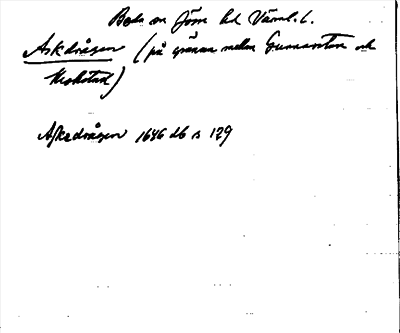 Bo en Jöss hd Värml. l.
Askdrågen (på gränsen mellan Gunnarstor och
Mokstad)
Askedrågen 1646 db s 129